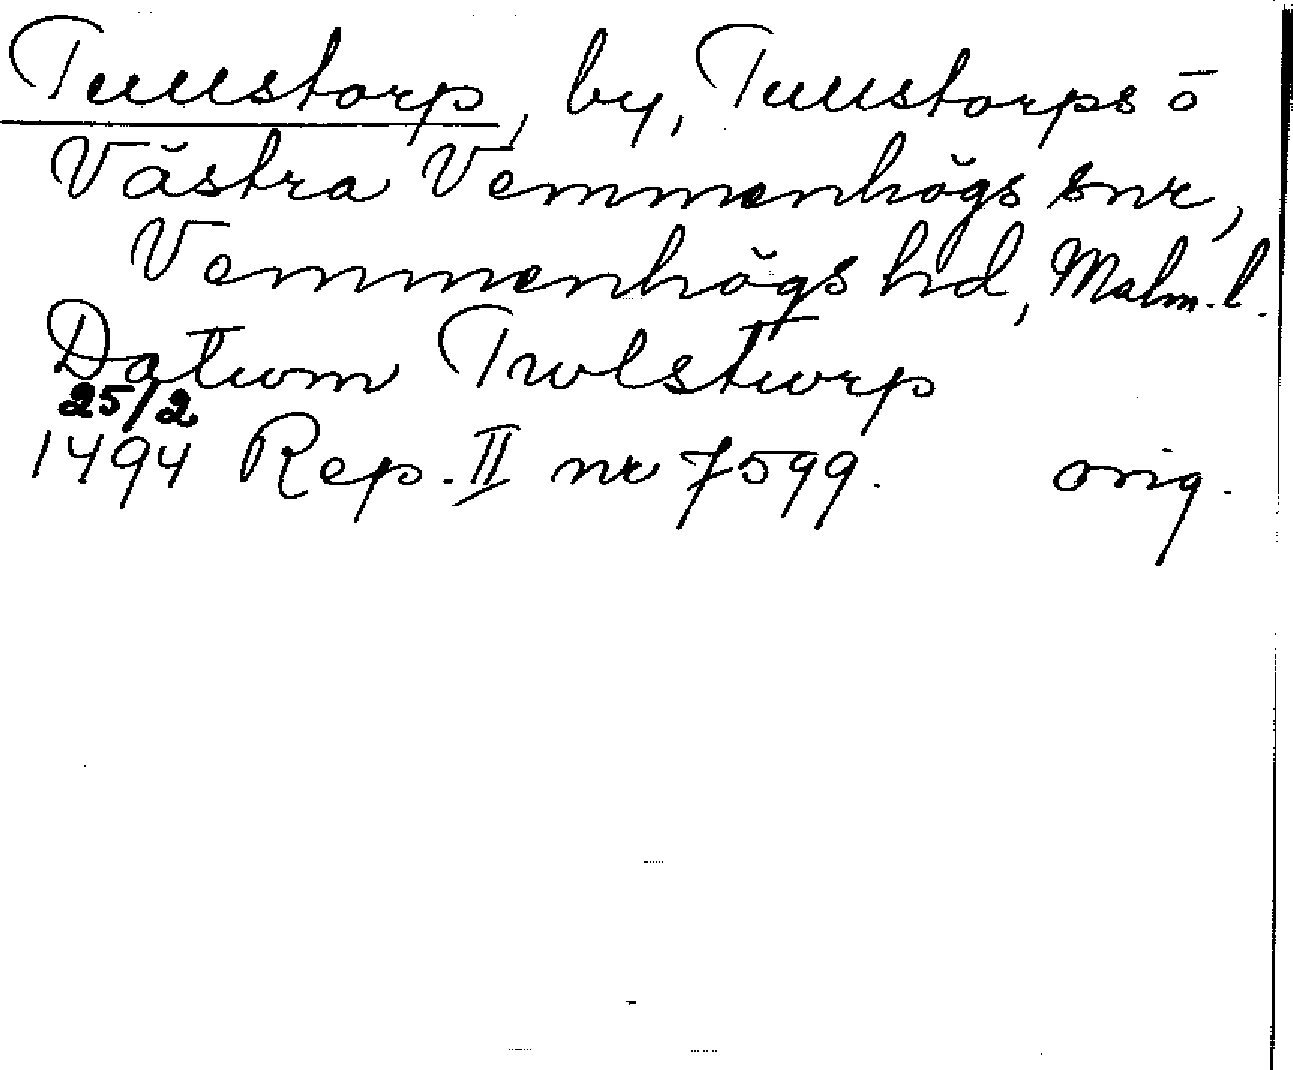 Tullstorp, by, Tullstorps o
Västra Vemmenhögs snr,
Vemmenhögs hd, Malm. l.
Datum Twlstwrp
25/2
1494 Rep. II nr 7599. orig.